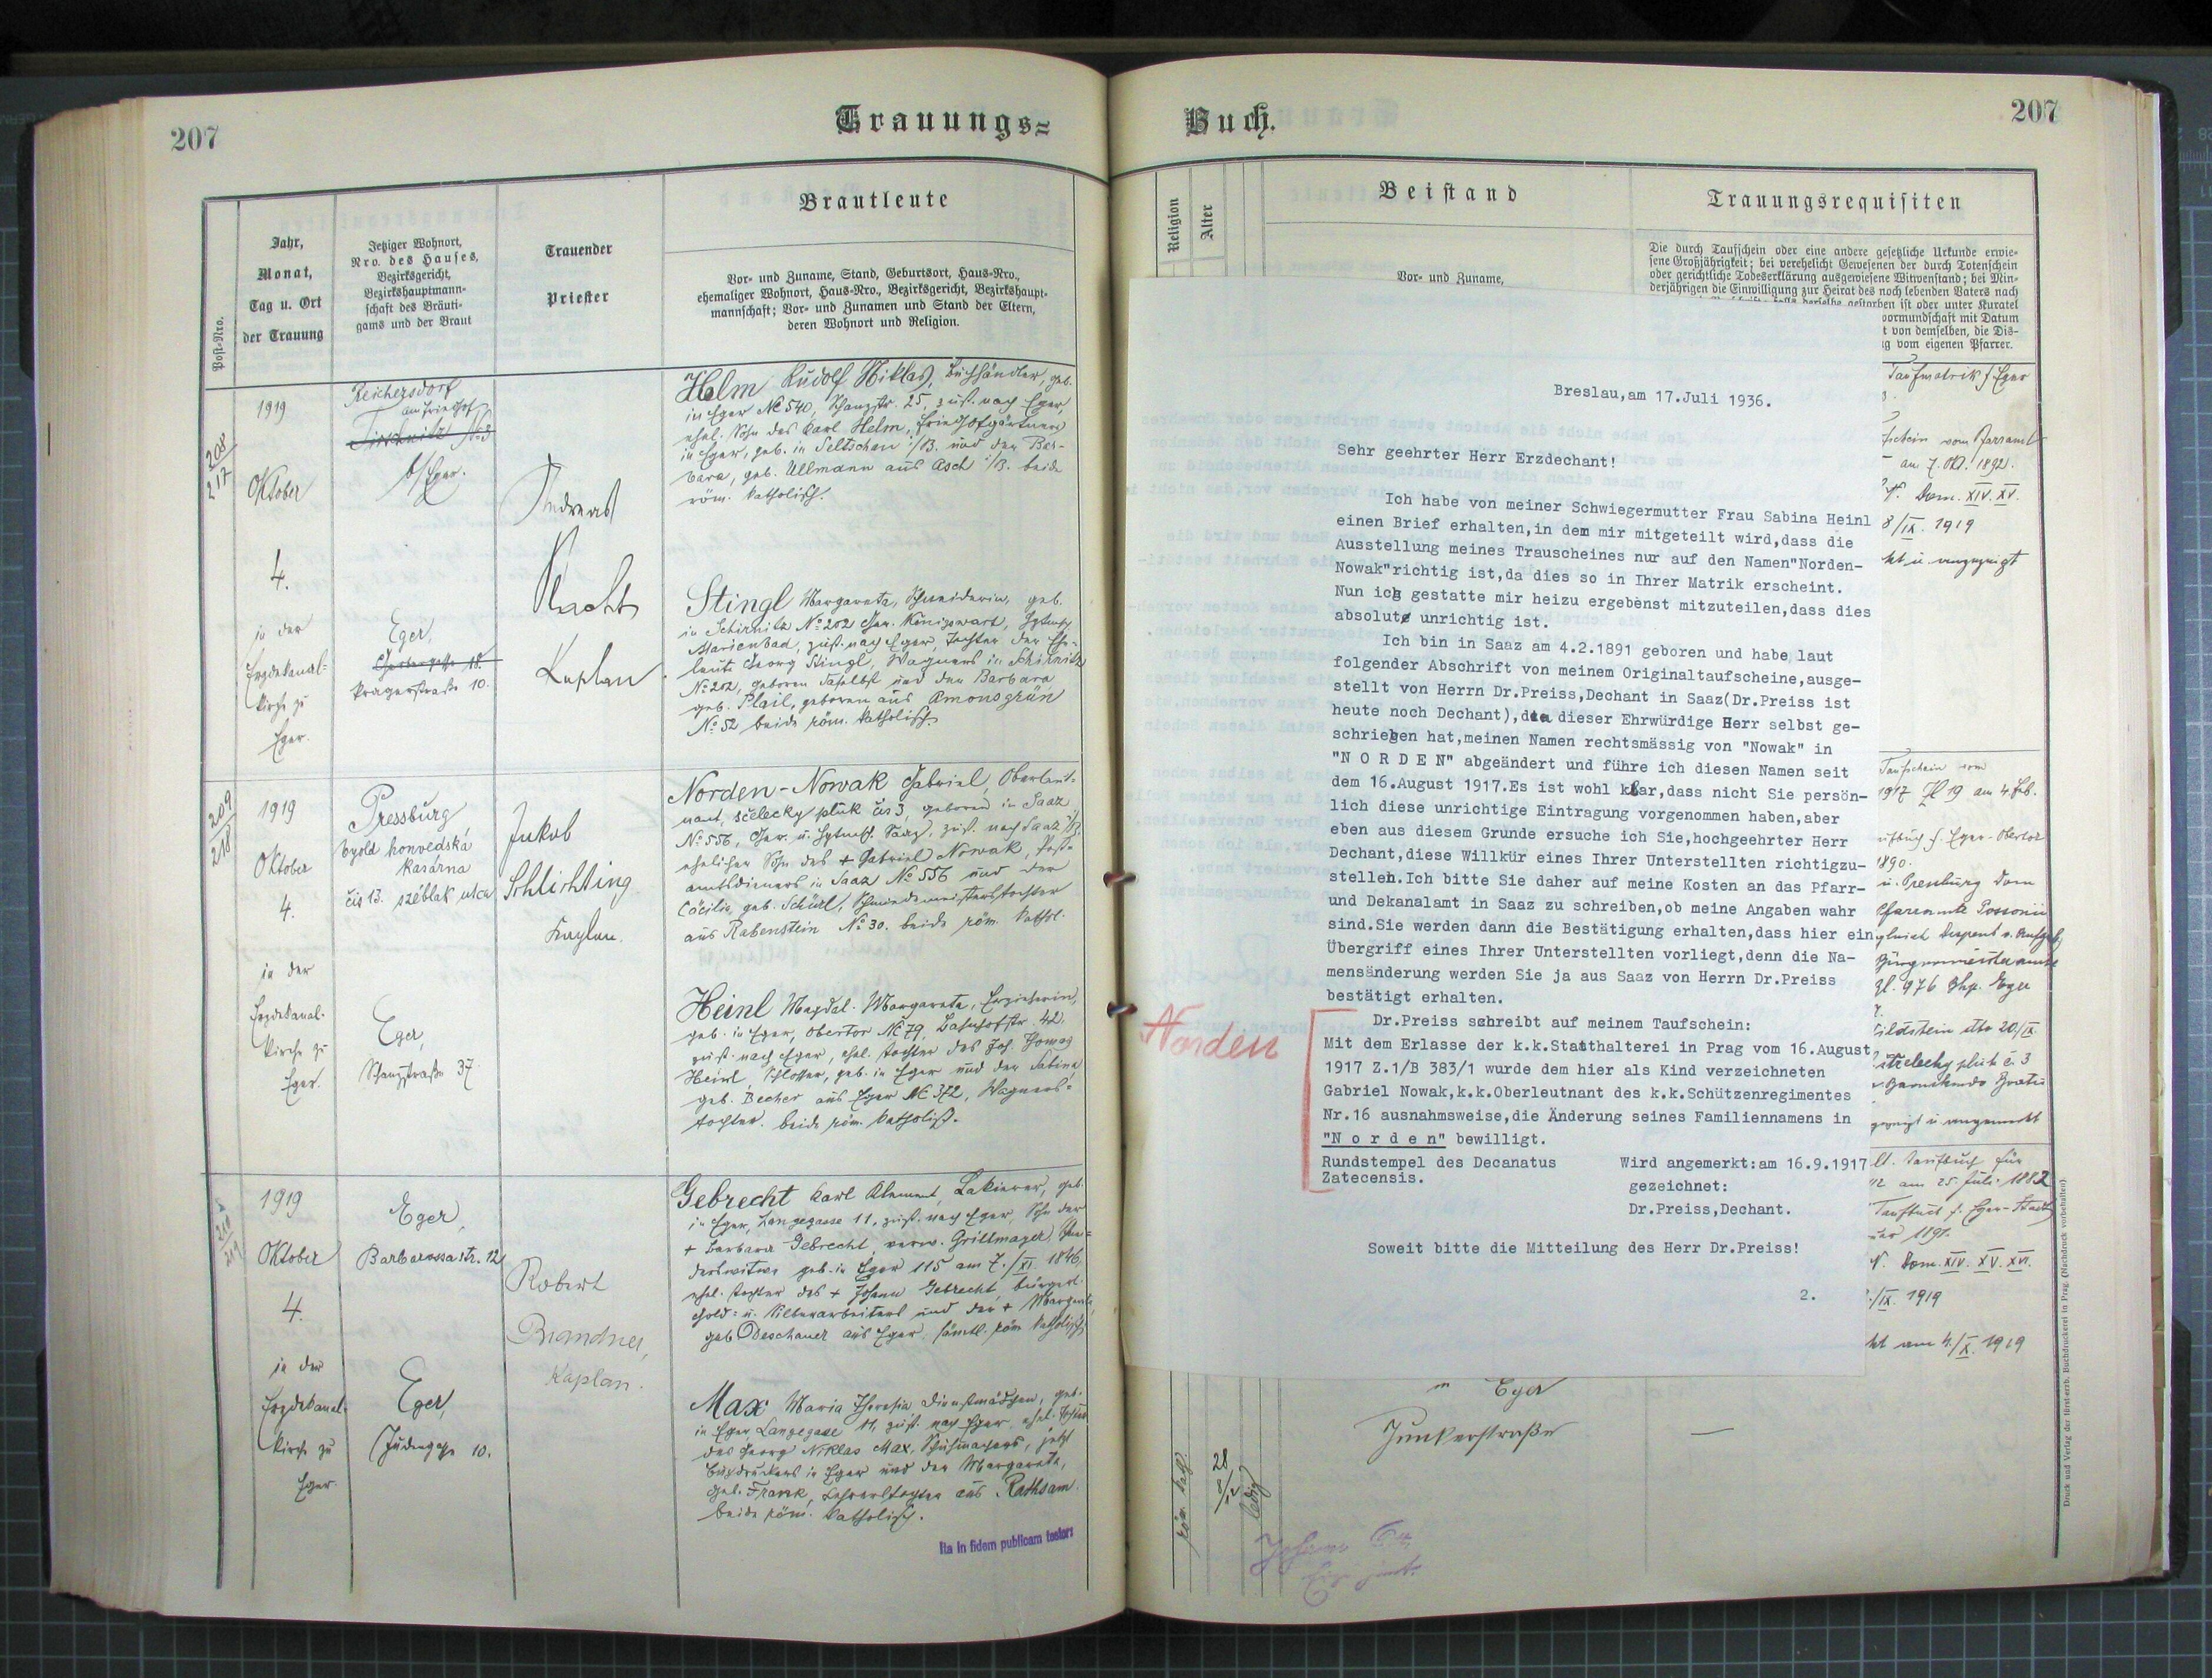 207
Trauungs=
Post-Nro.
Jahr,
Monat,
Tag u. Ort
der Trauung
Jetziger Wohnort,
Nro. des Hauses,
Bezirksgericht,
Bezirkshauptmann-
schaft des Bräuti-
gams und der Braut
Trauender
Priester
Brautleute
Vor- und Zuname, Stand, Geburtsort, Haus-Nro.,
ehemaliger Wohnort, Haus-Nro., Bezirksgericht, Bezirkshaupt-
mannschaft; Vor- und Zunamen und Stand der Eltern,
deren Wohnort und Religion.
208
217
1919
Oktober
4.
in der
Erzdekanal-
kirche zu
Eger.
Reichersdorf
am Friedhof
b/Eger.
Eger,
Pragerstraße 10.
Andreas
Kaplan
Helm Rudolf Niklas, Buchhändler, geb.
in Eger No 540, Schanzstr. 25, zust. nach Eger,
ehel. Sohn des Karl Helm, Friedhofgärtners
in Eger, geb. in Seltschan i/B. und der Bar-
bara, geb. Ullmann aus Asch i/B. beide
röm. katholisch.
Stingl Margareta, Schneiderin, geb.
in Schirnitz No 202 Ger. Königswart,
Marienbad, zust. nach Eger, Tochter der Ehe-
leute Georg Stingl, Wagners in Schirnitz
No 202, geboren daselbst und der Barbara
geb. Plail, geboren aus Amonsgrün
No 52 beide röm. katholisch
209
218
1919
Oktober
4.
in der
Erzdekanal-
kirche zu
Eger.
Pressburg
honvedská
kasárna
čis 13. széblak utca
Eger,
Schanzstraße 37.
Jakob
Schlichting
Kaplan.
Norden-Nowak Gabriel, Oberleut-
nant, střelecký pluk čis 3, geboren in Saaz
No 556, Ger. u. Saaz, zust. nach Saaz i/B.
ehelicher Sohn des + Gabriel Nowak, Post-
amtsdieners in Saaz No 556 und der
Cäcilia, geb. Schürl, Schmiedemeisterstochter
aus Rabenstein No 30. beide röm. kathol.
Heinl Magdal. Margareta, Erzieherin,
geb. in Eger, Obertor No 79, Bahnhofstr. 42.
zust. nach Eger, ehel. Tochter des Joh. Thomas
Heinl, Schlosser, geb. in Eger und der Sabina
geb. Becher aus Eger No 372, Wagners-
tochter. beide röm. katholisch.
1919
Oktober
4.
in der
Erzdekanal-
kirche zu
Eger.
Eger,
Barbarossastr. 12
Eger,
Judengasse 10.
Robert
Brandner,
Kaplan.
Gebrecht Karl Klement, Lakierer, geb.
in Eger, Langegasse 11, zust. nach Eger, Sohn der
+ Barbara Gebrecht verw. Grillmayer,
geb. in Eger 115 am 7./XI. 1846,
ehel. Tochter des + Johann Gebrecht, bürgerl.
Gold- u. Silberarbeiters und der + Margareta,
geb. Deschauer aus Eger. sämtl. röm. katholisch
Max Maria Theresia Dienstmädchen, geb.
in Eger, Langegasse 11, zust. nach Eger, ehel. Tochter
des Georg Niklas Max, Schuhmachers, jetzt
Buchdruckers in Eger und der Margareta,
geb. Frank, Tochter aus Rathsam
beide röm. katholisch.
Ita in fidem publicam testor:
Buch.
207
Religion
Alter
Beistand
Vor- und Zuname,
Trauungsrequisiten
Die durch Taufschein oder eine andere gesetzliche Urkunde erwie-
sene Großjährigkeit; bei verehelicht Gewesenen der durch Totenschein
oder gerichtliche Todeserklärung ausgewiesene Witwenstand; bei Min-
derjährigen die Einwilligung zur Heirat des noch lebenden Vaters nach
derselbe gestorben ist oder unter Kuratel
vormundschaft mit Datum
t von demselben, die Dis-
ng vom eigenen Pfarrer.
Breslau,am 17.Juli 1936.
Sehr geehrter Herr Erzdechant!
Ich habe von meiner Schwiegermutter Frau Sabina Heinl
einen Brief erhalten,in dem mir mitgeteilt wird,dass die
Ausstellung meines Trauscheines nur auf den Namen"Norden-
Nowak"richtig ist,da dies so in Ihrer Matrik erscheint.
Nun ich gestatte mir heizu ergebenst mitzuteilen,dass dies
absolute unrichtig ist.
Ich bin in Saaz am 4.2.1891 geboren und habe laut
folgender Abschrift von meinem Originaltaufscheine,ausge-
stellt von Herrn Dr.Preiss,Dechant in Saaz(Dr.Preiss ist
heute noch Dechant),den dieser Ehrwürdige Herr selbst ge-
schrieben hat,meinen Namen rechtsmässig von "Nowak" in
"N O R D E N" abgeändert und führe ich diesen Namen seit
dem 16.August 1917.Es ist wohl klar,dass nicht Sie persön-
lich diese unrichtige Eintragung vorgenommen haben,aber
eben aus diesem Grunde ersuche ich Sie,hochgeehrter Herr
Dechant,diese Willkür eines Ihrer Unterstellten richtigzu-
stellen.Ich bitte Sie daher auf meine Kosten an das Pfarr-
und Dekanalamt in Saaz zu schreiben,ob meine Angaben wahr
sind.Sie werden dann die Bestätigung erhalten,dass hier ein
Übergriff eines Ihrer Unterstellten vorliegt,denn die Na-
mensänderung werden Sie ja aus Saaz von Herrn Dr.Preiss
bestätigt erhalten.
Norden
Dr.Preiss schreibt auf meinem Taufschein:
Mit dem Erlasse der k.k.Statthalterei in Prag vom 16.August
1917 Z.1/B 383/1 wurde dem hier als Kind verzeichneten
Gabriel Nowak,k.k.Oberleutnant des k.k.Schützenregimentes
Nr.16 ausnahmsweise,die Änderung seines Familiennamens in
"N o r d e n" bewilligt.
Rundstempel des Decanatus Wird angemerkt:am 16.9.1917
Zatecensis. gezeichnet:
Dr.Preiss,Dechant.
Soweit bitte die Mitteilung des Herr Dr.Preiss!
2.
Taufmatrik f. Eger
am 7. Okt. 1892.
Dom. XIV. XV.
8/IX. 1919
Taufschein vom
1917 Zl 19 am 4. Feb.
f. Eger-Obertor
1890.
u. Pressburg Dom
Pfarramte Possonii
Bürgermeisteramt
Zl. 976 Bhp. Eger
Wildstein dto 20/IX.
střelecký pluk č. 3
lt. Taufbuch für
am 25. Juli 1882
Taufbuch f. Eger-Stadt
1891.
Dom. XIV. XV. XVI.
/IX. 1919
am 4./X. 1919
in Eger
Junkerstraße
—
röm. kath.
28
ledig
Johann
Druck und Verlag der fürst-erzb. Buchdruckerei in Prag. (Nachdruck vorbehalten)